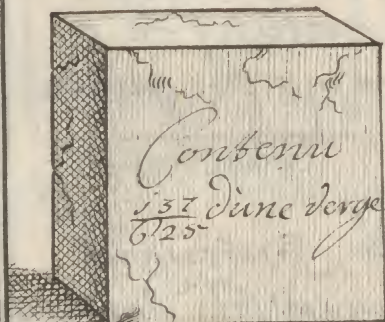 Contenu
137/625 d'une Verge